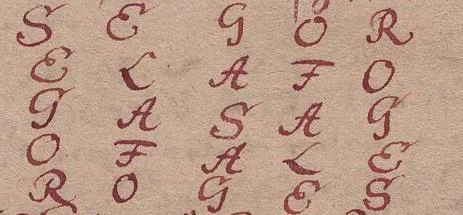 S E G O R
E L A F O
G A S A G
O F A L E
R O G E S